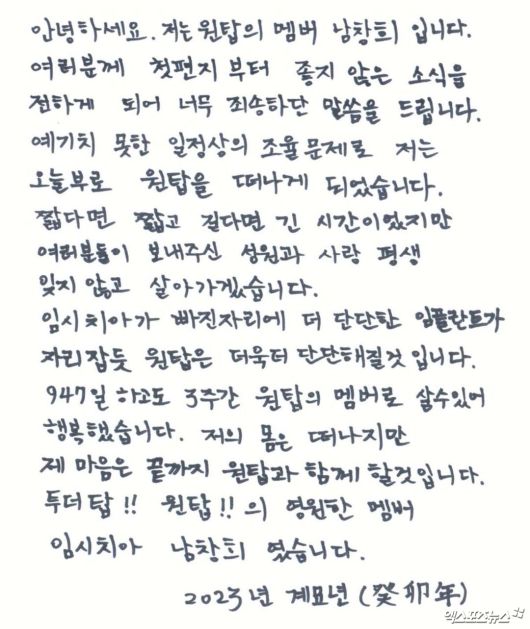 안녕하세요. 저는 원탑의 멤버 남창희 입니다.
여러분께 첫편지 부터 좋지 않은 소식을
전하게 되어 너무 죄송하단 말씀을 드립니다.
예기치 못한 일정상의 조율문제로 저는
오늘부로 원탑을 떠나게 되었습니다.
짧다면 짧고 길다면 긴 시간이었지만
여러분들이 보내주신 성원과 사랑 평생
잊지 않고 살아가겠습니다.
임시치아가 빠진자리에 더 단단한 임플란트가
자리잡듯 원탑은 더욱더 단단해질것 입니다.
947일 하고도 3주간 원탑의 멤버로 살수있어
행복했습니다. 저의 몸은 떠나지만
제 마음은 끝까지 원탑과 함께 할것입니다.
투더탑!! 원탑!! 의 영원한 멤버
임시치아 남창희 였습니다.
2023년 계묘년 (癸卯年)
엑스포츠뉴스